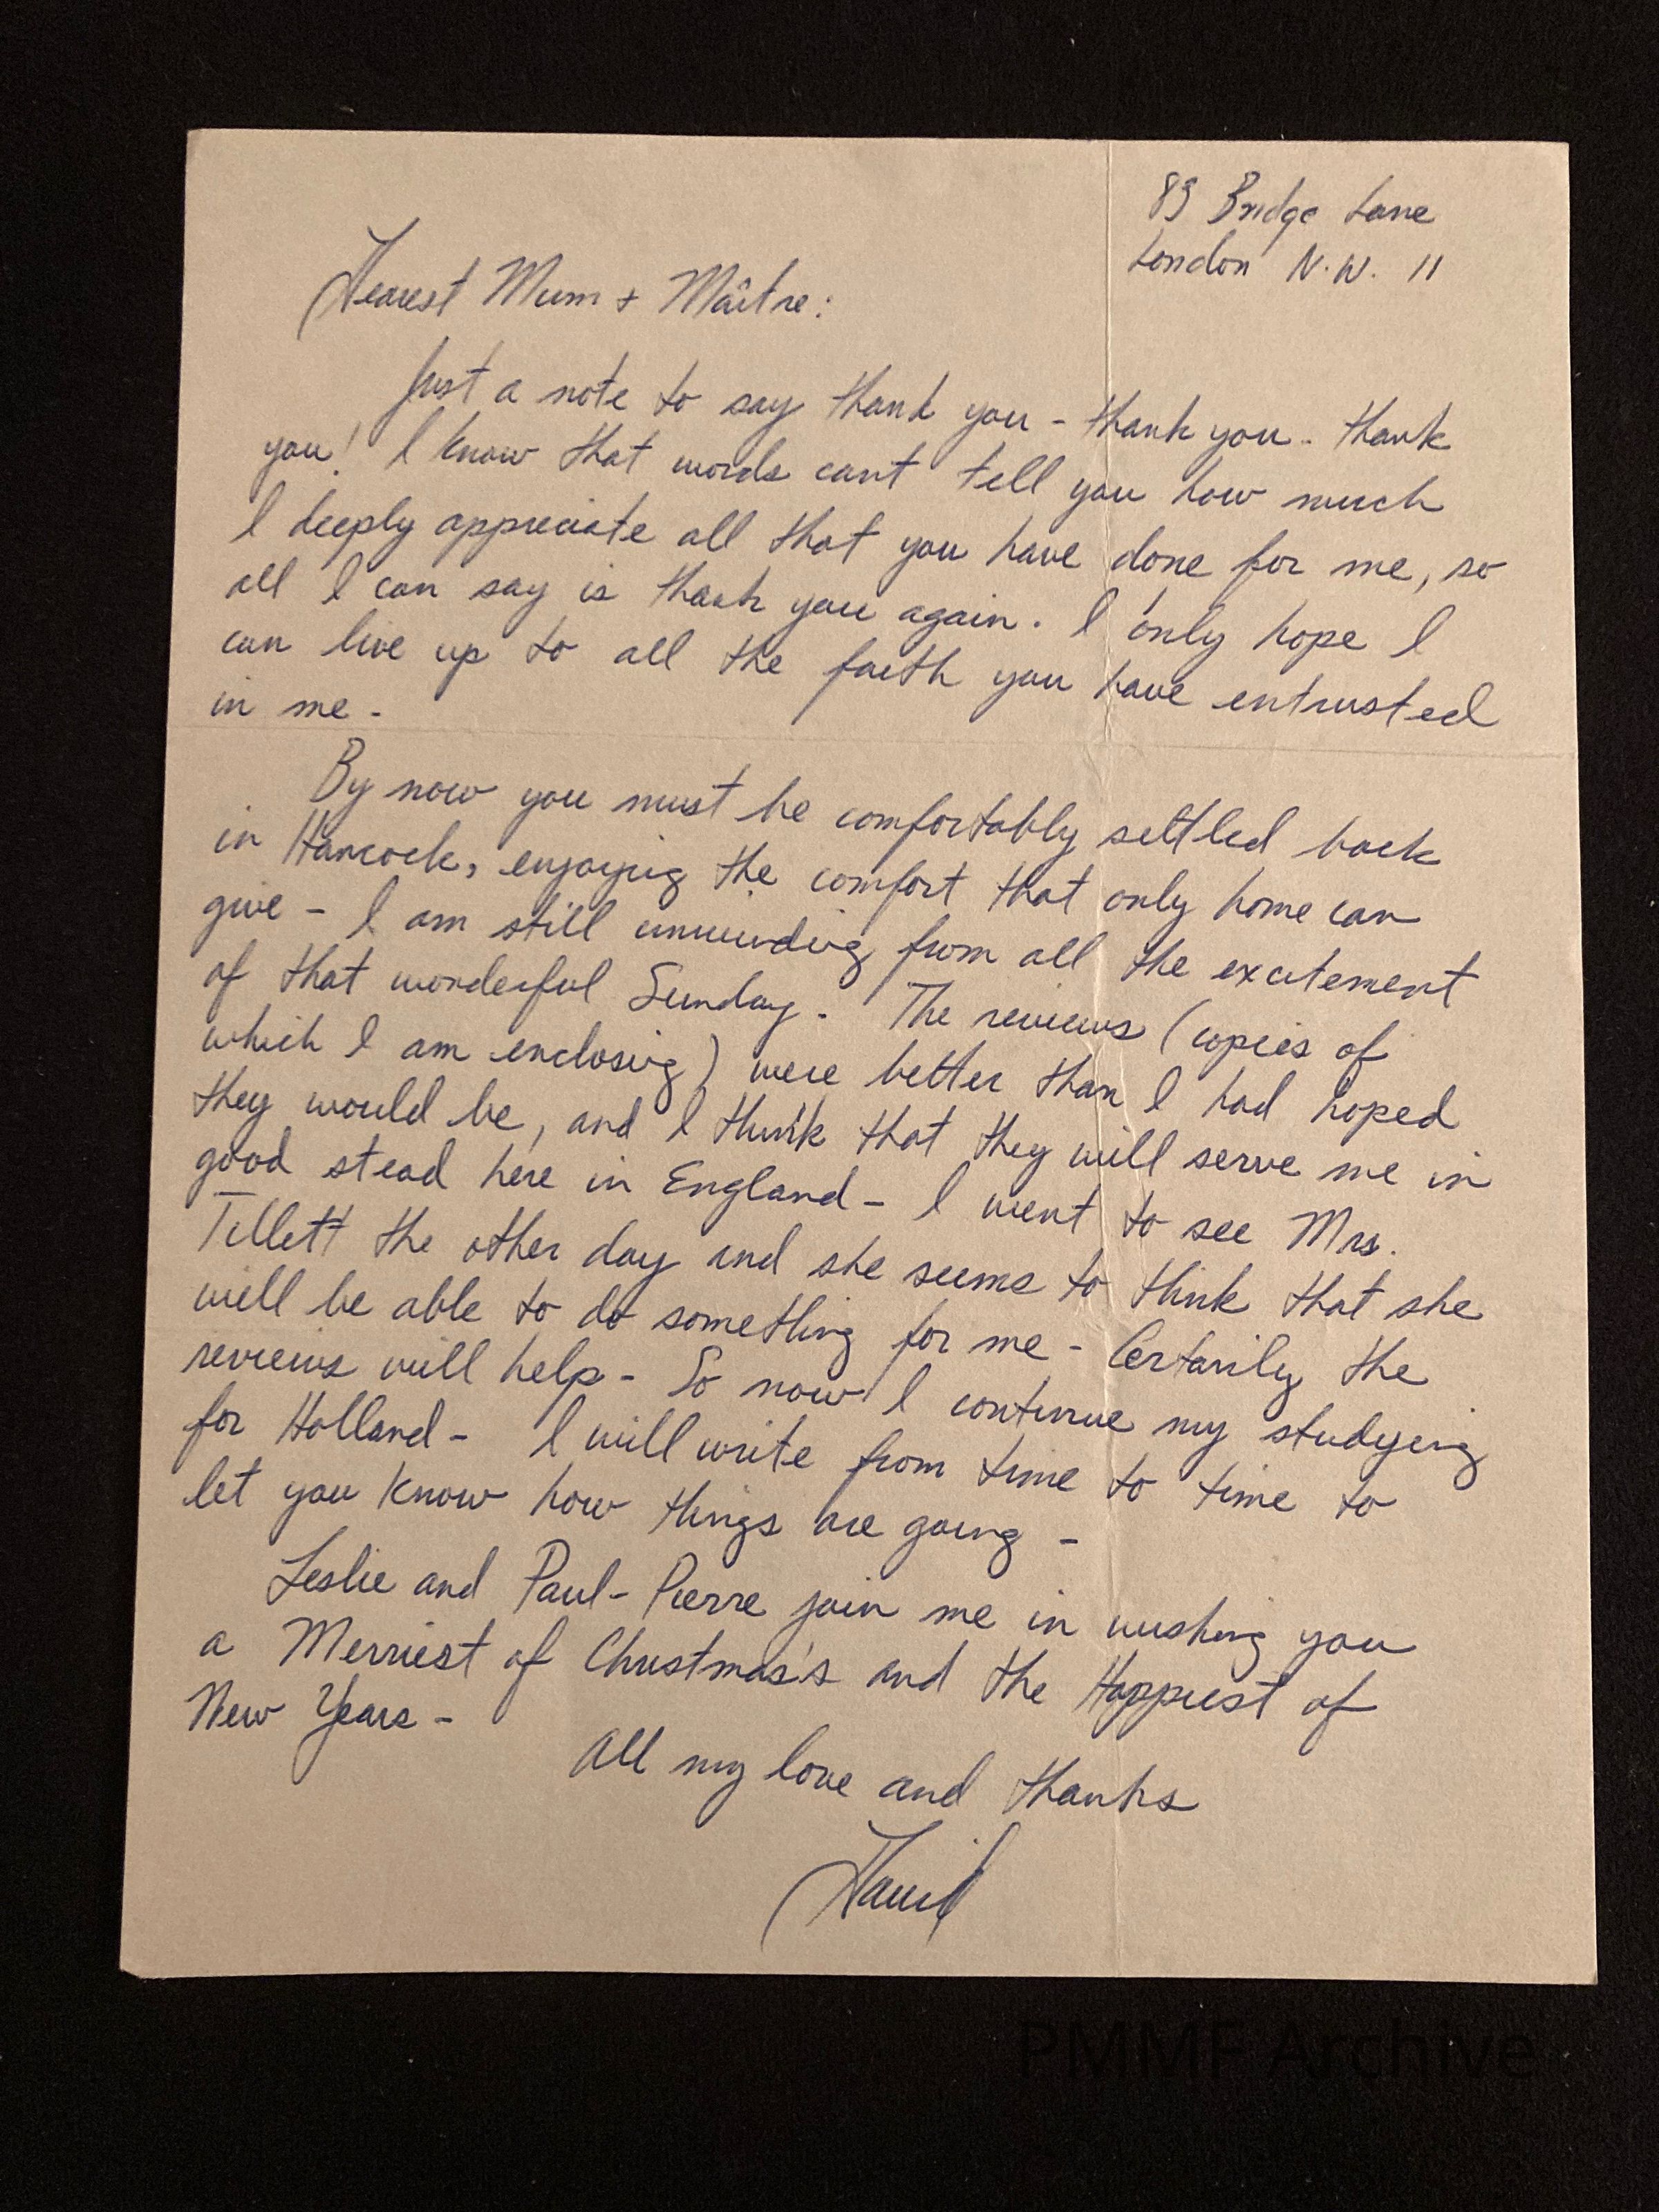 89 Bridge Lane
London N.W. 11
Dearest Mum + Maître:
Just a note to say thank you - thank you - thank
you! I know that words cant tell you how much
I deeply appreciate all that you have done for me, so
all I can say is thank you again. I only hope I
can live up to all the faith you have entrusted
in me -
By now you must be comfortably settled back
in Hancock, enjoying the comfort that only home can
give - I am still unwinding from all the excitement
of that wonderful Sunday. The reviews (copies of
which I am enclosing) were better than I had hoped
they would be, and I think that they will serve me in
good stead here in England - I went to see Mrs.
Tillett the other day and she seems to think that she
will be able to do something for me - Certainly the
reviews will help - So now I continue my studying
for Holland - I will write from time to time to
let you know how things are going -
Leslie and Paul-Pierre join me in wishing you
a Merriest of Christmas's and the Happiest of
New Years -
All my love and thanks
David
PMMF Archive